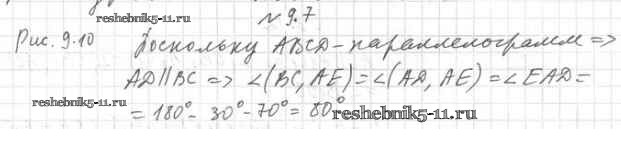 № 9.7
reshebnik5-11.ru
Рис. 9.10 Поскольку ABCD - параллелограмм =>
AD∥BC => ∠(BC, AE) = ∠(AD, AE) = ∠EAD =
reshebnik5-11.ru
= 180° - 30° - 70° = 80°
reshebnik5-11.ru